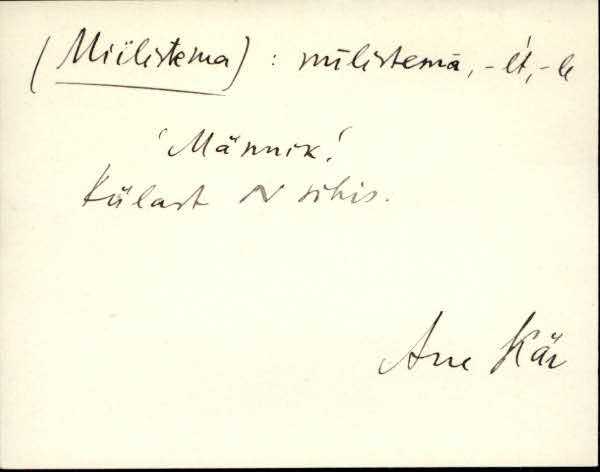 (Miilistema) : mīlistemā, -ét, -le
'Männik'.
Külast N sihis.
Kär